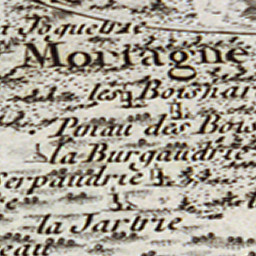 la Joquetrie
Mortagne
les Boisnar
Poteau des Bois
la Burgaudrie
Serpaudrie
la Jartrie
eau